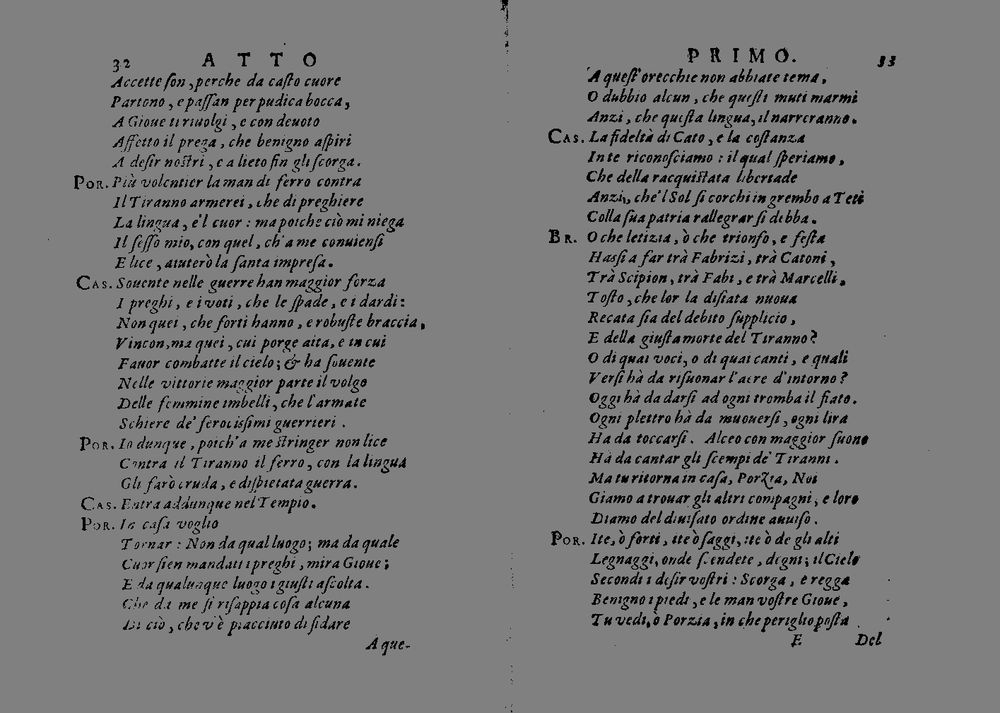 32 ATTO
Accette ſon, perche da caſto cuore
Partono, e paſſan per pudica bocca,
A Gioue ti riuolgi, e con deuoto
Affetto il prega, che benigno aſpiri
A deſir noſtri, e a lieto fin gli ſcorga.
POR. Più volentier la man di ferro contra
Il Tiranno armerei, che di preghiere
La lingua, e'l cuor: ma poiche ciò mi niega
Il ſeſſo mio, con quel, ch'a me conuienſi
E lice, aiuterò la ſanta impreſa.
CAS. Souente nelle guerre han maggior forza
I preghi, e i voti, che le ſpade, e i dardi:
Non quei, che forti hanno, e robuſte braccia,
Vincon, ma quei, cui porge aita, e in cui
Fauor combatte il cielo; & ha ſouente
Nelle vittorie maggior parte il volgo
Delle femmine imbelli, che l'armate
Schiere de' ferociſſimi guerrieri.
POR. Io dunque, poich'a me ſtringer non lice
Contra il Tiranno il ferro, con la lingua
Gli farò cruda, e diſpietata guerra.
CAS. Entra addunque nel Tempio.
POR. In caſa voglio
Tornar: Non da qual luogo; ma da quale
Cuor ſien mandati i preghi, mira Gioue;
E da qualunque luogo i giuſti aſcolta.
Che da me ſi riſappia coſa alcuna
Di ciò, che v'è piacciuto di fidare
A que-
PRIMO. 33
A queſt'orecchie non abbiate tema,
O dubbio alcun, che queſti muti marmi
Anzi, che queſta lingua, il narreranno.
CAS. La fideltà di Cato, e la coſtanza
In te riconoſciamo: il qual ſperiamo,
Che della racquiſtata libertade
Anzi, che'l Sol ſi corchi in grembo a Teti
Colla ſua patria rallegrar ſi debba.
BR. O che letizia, ò che trionfo, e feſta
Haſſi a far trà Fabrizi, trà Catoni,
Trà Scipion, trà Fabi, e trà Marcelli,
Toſto, che lor la diſiata nuoua
Recata ſia del debito ſupplicio,
E della giuſta morte del Tiranno?
O di quai voci, o di quai canti, e quali
Verſi hà da riſuonar l'aere d'intorno?
Oggi hà da darſi ad ogni tromba il fiato.
Ogni plettro hà da muouerſi, ogni lira
Ha da toccarſi. Alceo con maggior ſuono
Hà da cantar gli ſcempi de' Tiranni.
Ma tu ritorna in caſa, Porzia, Noi
Giamo a trouar gli altri compagni, e loro
Diamo del diuiſato ordine auuiſo.
POR. Ite, ò forti, ite ò ſaggi, ite ò de gli alti
Legnaggi, onde ſcendete, degni; il Cielo
Secondi i deſir voſtri: Scorga, e regga
Benigno i piedi, e le man voſtre Gioue,
Tu vedi, ò Porzia, in che periglio poſta
E Del